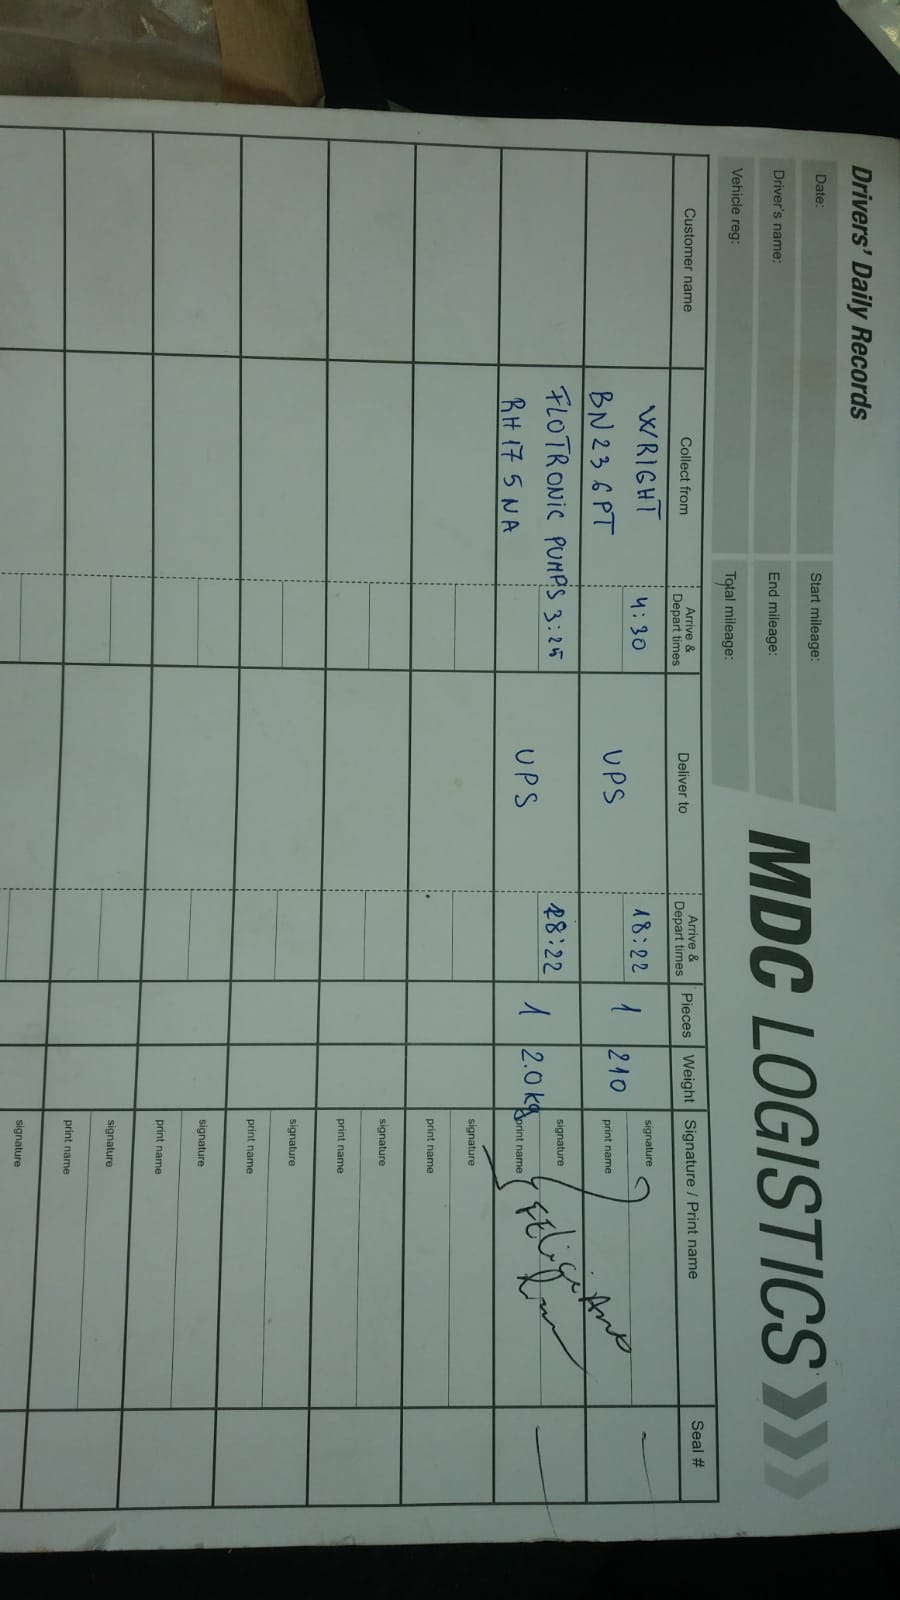 Drivers' Daily Records
MDC LOGISTICS
Date:
Start mileage:
Driver's name:
End mileage:
Vehicle reg:
Total mileage:
Customer name
Collect from
Arrive & Depart times
Deliver to
Arrive & Depart times
Pieces
Weight
Signature / Print name
Seal #
WRIGHT
BN23 6PT
4:30
UPS
18:22
1
210
signature
print name
FLOTRONIC PUMPS
RH17 5NA
3:25
UPS
18:22
1
2.0kg
signature
print name
signature
print name
signature
print name
signature
print name
signature
print name
signature
print name
signature